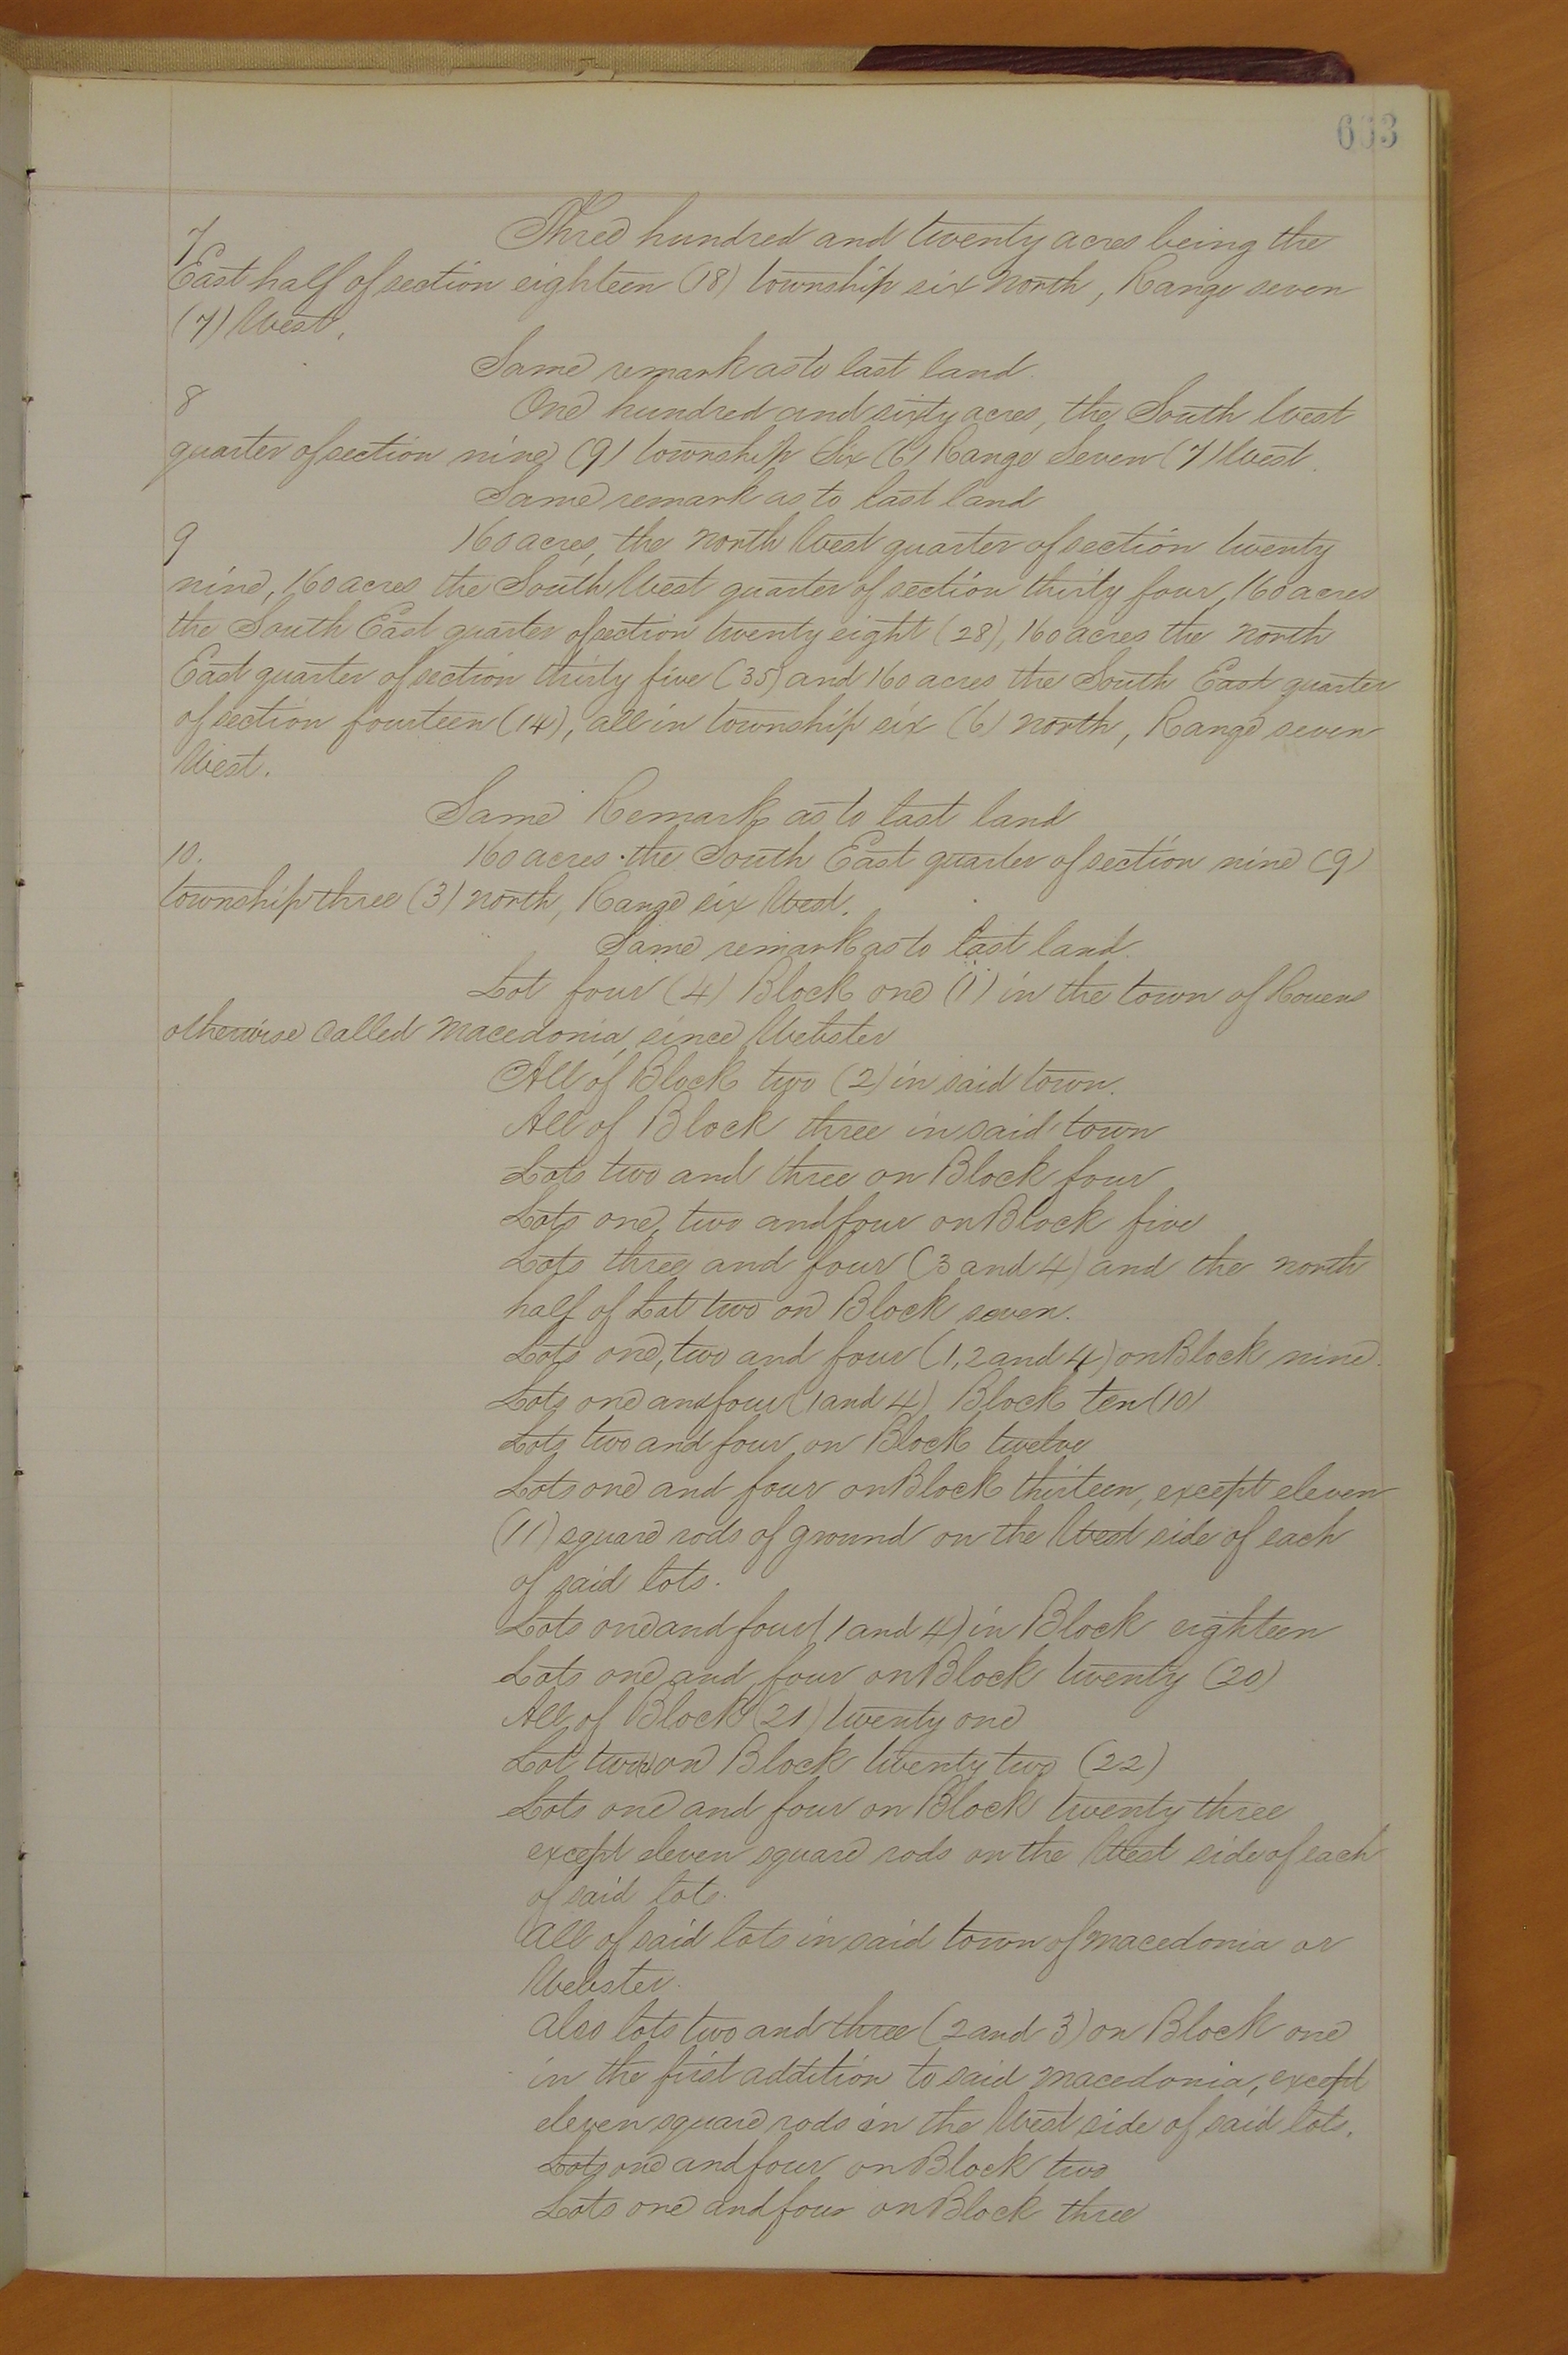 603
7 Three hundred and twenty acres being the
East half of section eighteen (18) township six north, Range seven
(7) West.
Same remark as to last land
8 One hundred and sixty acres, the South West
quarter of section nine (9) township Six (6) Range Seven (7) West.
Same remark as to last land
9 160 acres, the north West quarter of section twenty
nine, 160 acres the South West quarter of section thirty four, 160 acres
the South East quarter of section twenty eight (28), 160 acres the north
East quarter of section thirty five (35) and 160 acres the South East quarter
of section fourteen (14), all in township six (6) north, Range seven
West.
Same Remark as to last land
10. 160 acres the South East quarter of section nine (9)
township three (3) north, Range six West.
Same remark as to last land.
Lot four (4) Block one (1) in the town of
otherwise called Macedonia, since Webster
All of Block two (2) in said town.
All of Block three in said town
Lots two and three on Block four
Lots one, two and four on Block five
Lots three and four (3 and 4) and the north
half of Lot two on Block seven.
Lots one, two and four (1, 2 and 4) on Block nine.
Lots one and four (1 and 4) Block ten (10)
Lots two and four on Block twelve
Lots one and four on Block thirteen, except eleven
(11) square rods of ground on the West side of each
of said lots.
Lots one and four (1 and 4) in Block eighteen
Lots one and four on Block twenty (20)
All of Block (21) twenty one
Lot two on Block twenty two (22)
Lots one and four on Block twenty three
except eleven square rods on the West side of each
of said lots.
All of said lots in said town of Macedonia or
Webster.
also lots two and three (2 and 3) on Block one
in the first addition to said Macedonia, except
eleven square rods in the West side of said lots.
Lots one and four on Block two
Lots one and four on Block three